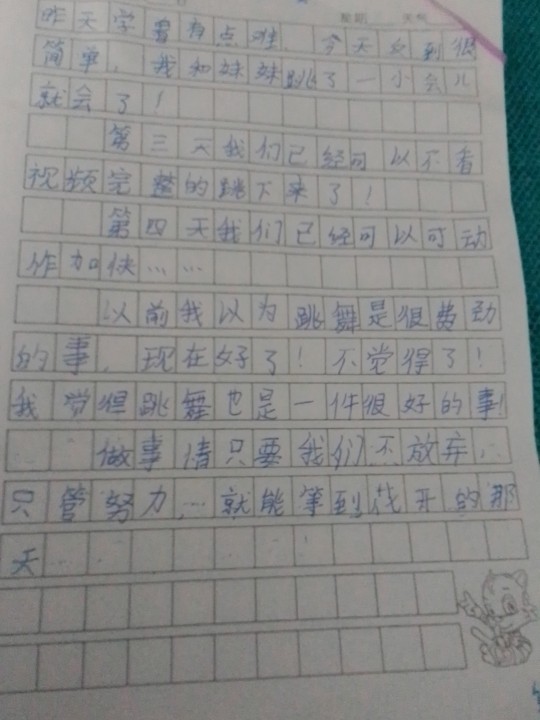 星期 天气
昨天学着有点难，今天女到很
简单，我和妹妹跳了一小会儿
就会了！
第三天我们已经可以不看
视频完整的跳下来了！
第四天我们已经可以可动
作加快……
以前我以为跳舞是很费劲
的事，现在好了！不觉得了！
我觉但跳舞也是一件很好的事！
做事情只要我们不放弃，
只管努力，…就能等到花开的那
天